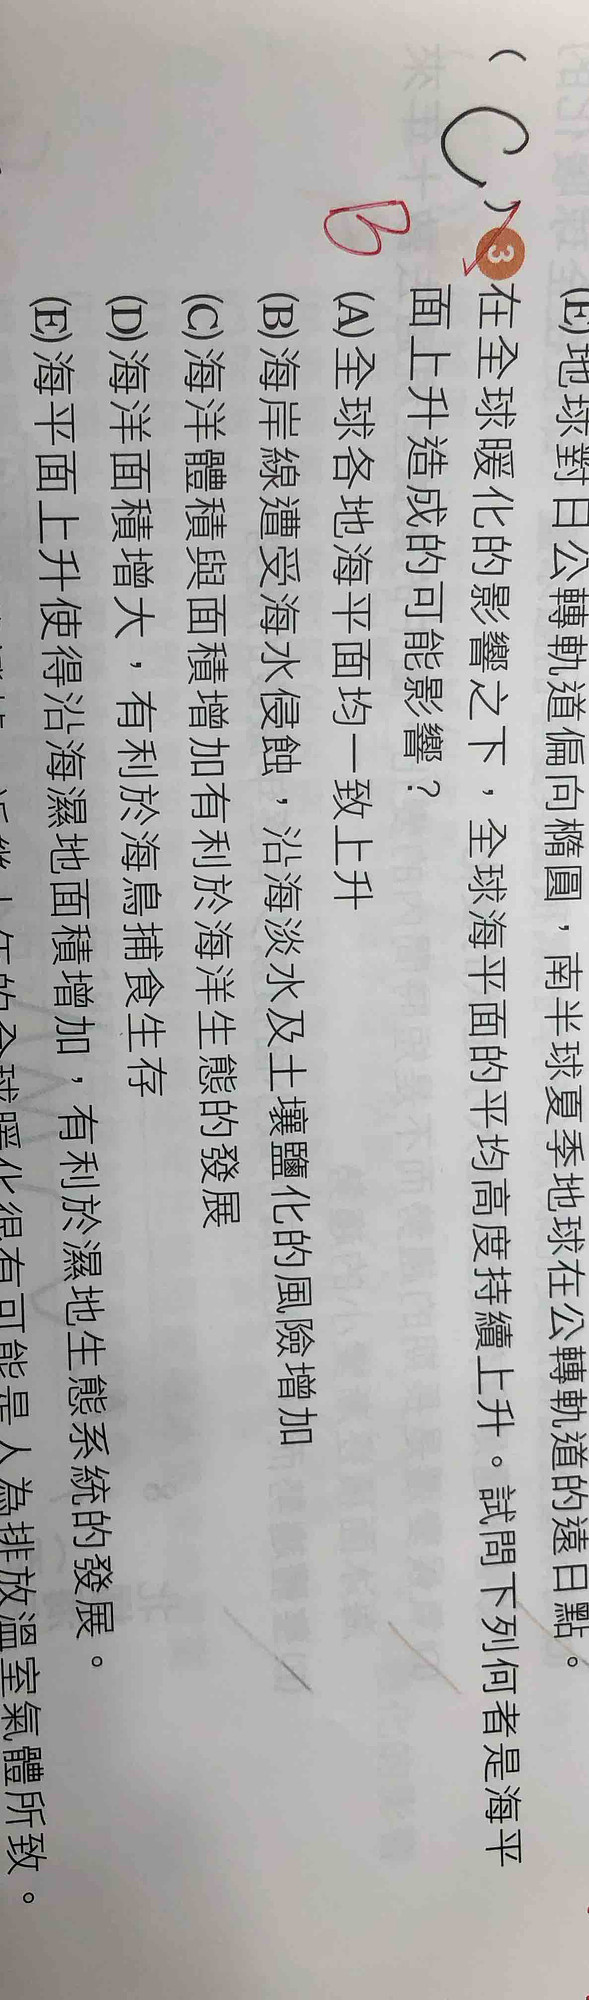 (E)地球對日公轉軌道偏向橢圓，南半球夏季地球在公轉軌道的遠日點。
( C ) 3 在全球暖化的影響之下，全球海平面的平均高度持續上升。試問下列何者是海平
面上升造成的可能影響？
B
(A)全球各地海平面均一致上升
(B)海岸線遭受海水侵蝕，沿海淡水及土壤鹽化的風險增加
(C)海洋體積與面積增加有利於海洋生態的發展
(D)海洋面積增大，有利於海鳥捕食生存
(E)海平面上升使得沿海濕地面積增加，有利於濕地生態系統的發展。
年的全球暖化很有可能是人為排放溫室氣體所致。